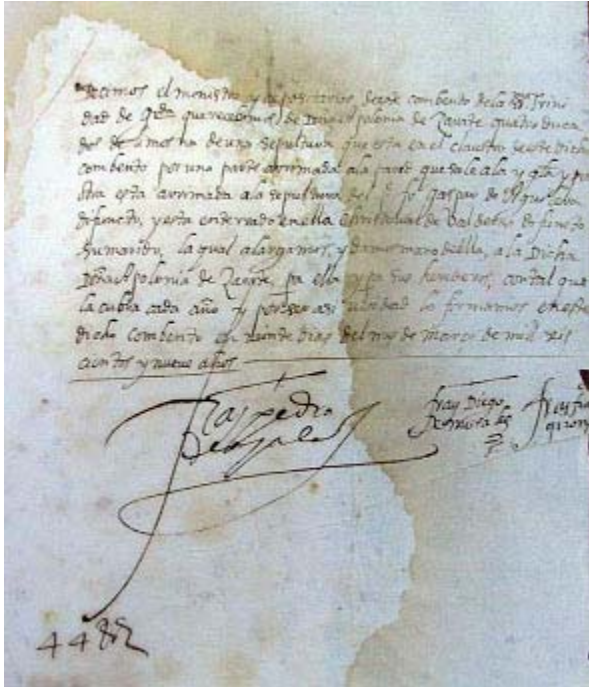 Decimos el ministro y depositarios deste combento de la ssma Trini
dad de que recebimos de Doña Apolonia de Zarate quatro duca
dos de limosna de una sepultura que esta en el claustro deste dicho
combento por una parte arrimada a la pared que sale a la yglª y por
otra esta arrimada a la sepultura del Gaspar de
difuncto, y esta enterrado en ella de difuncto
su marido, la qual alargamos, y damos mano della, a la Dicha
Doña Apolonia de Zarate, pa ella y pa sus herederos, con tal que
la cubra cada año y por ser asi verdad lo firmamos en este
dicho combento en veinte dias del mes de março de mil seis
cientos y nueve años
fray Pedro
fray Diego
fray